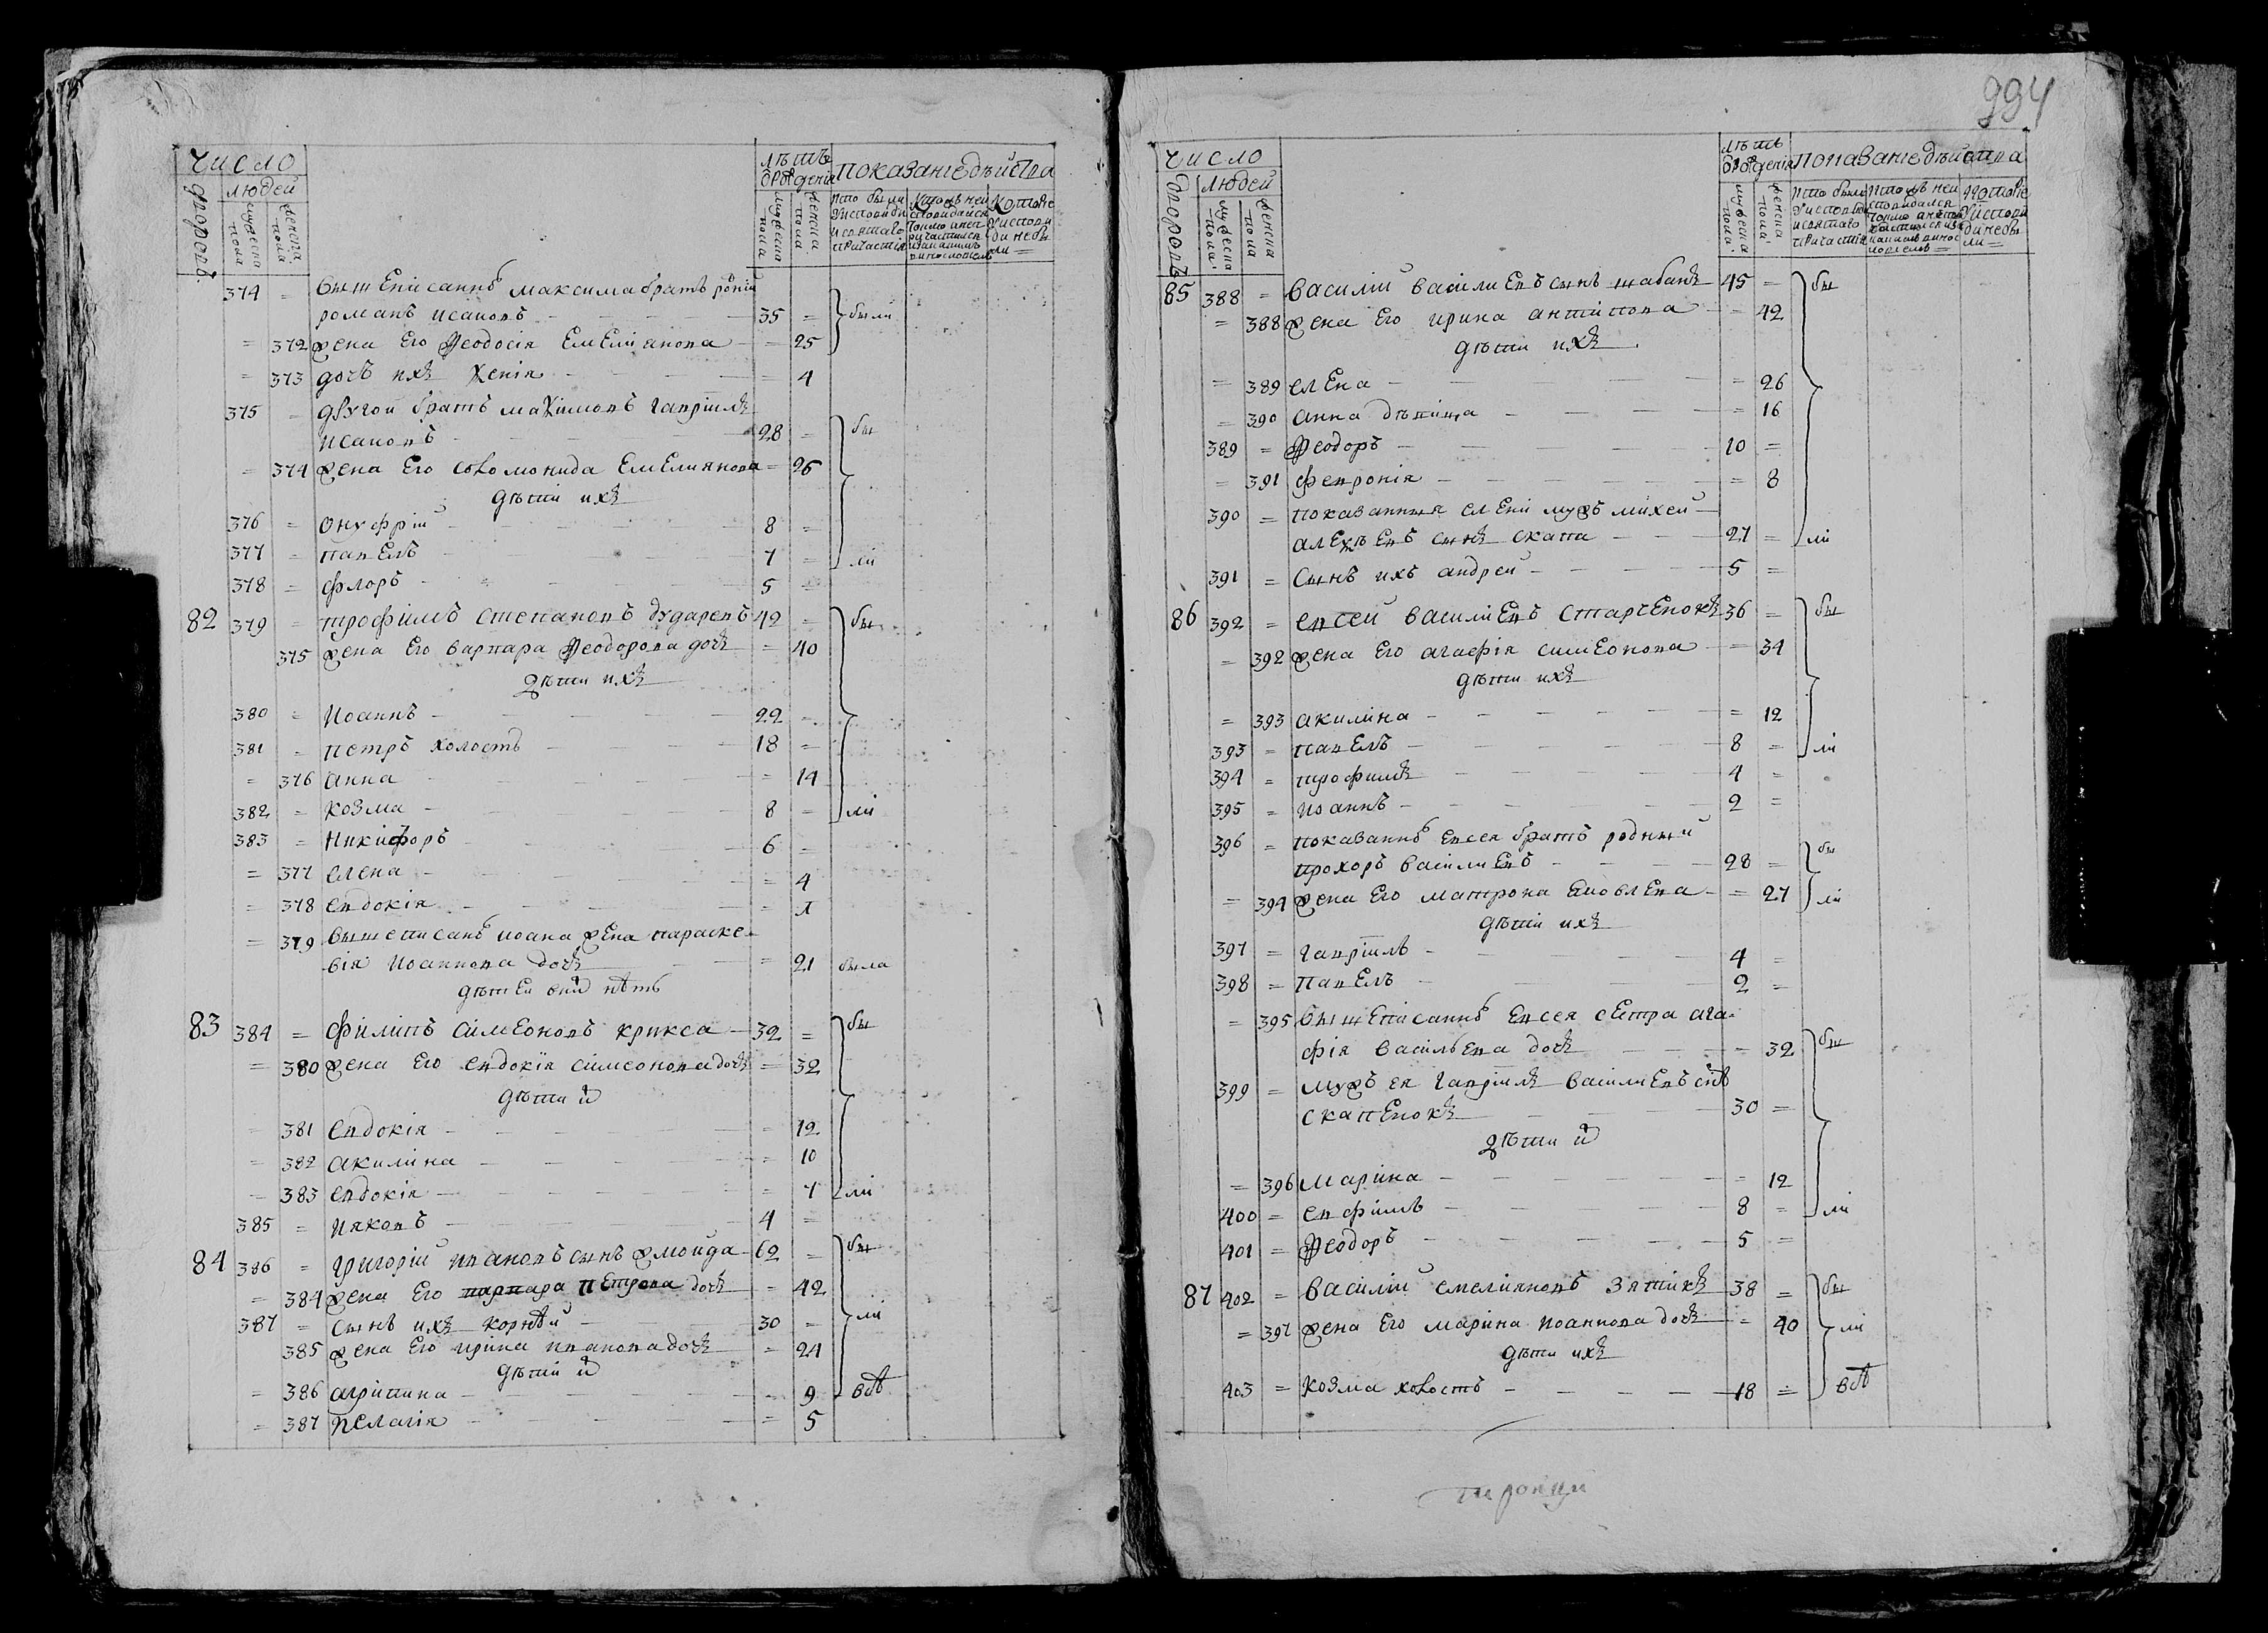 994
число
людей
дворовъ
мужеска пола
женска пола
лѣтъ
ѿ рожденія
мужеска пола
женска пола
показаніе дѣиства
374 = вышеписаннѡ максима братъ
романъ исаковъ 35 = были
= 372 жена его Ѳеодосія Емеліянова = 25
= 373 дочъ ихъ Ѯенія = 4
375 = другои братъ маѯимовъ гавріилъ
исаковъ 28 = бы
= 374 жена его соломонида Емелиянова = 26
дѣти ихъ
376 = Онуфріи 8 =
377 = павелъ 7 = ли
378 = флоръ 5 =
82 379 = трофимъ степановъ дударевъ 42 = бы
375 жена его варвара Ѳеодорова дочъ = 40
дѣти ихъ
380 = Иоаннъ 22 =
381 = петръ холостъ 18 =
= 376 анна = 14
382 = козма 8 = ли
383 = Никифоръ 6 =
= 377 елена = 4
= 378 евдокія =
= 379 вышеписанѡ иоана жена параске
вія Иоаннова дочъ = 21 была
дѣтеи нѣтъ
83 384 = филипъ симеоновъ крикса 32 = бы
= 380 жена его евдокія симеонова дочъ = 32
дѣти и
= 381 евдокія = 12
= 382 акилина = 10
= 383 евдокія = 7 ли
385 = Ияковъ 4 =
84 386 = григоріи ивановъ сынъ жмоида 62 = бы
= 384 жена его варвара петрова дочъ = 42
387 = сынъ ихъ корнѣи 30 = ли
385 жена его ирина иванова дочъ = 24
дѣти и
= 386 агрипина = 9 всѣ
= 387 пелагія = 5
число
людей
дворовъ
мужеска пола
женска пола
лѣтъ
ѿ рожденія
мужеска пола
женска пола
показаніе дѣиства
85 388 = василіи василиевъ сынъ шабанъ 45 = бы
= 388 жена его ирина антипова = 42
дѣти ихъ
= 389 елена = 26
= 390 анна дѣвица = 16
389 = Ѳеодоръ 10 =
= 391 февронія = 8
390 = показанныя елени мужъ михеи
алеѯѣевъ сынъ скапа 27 = ли
391 = сынъ ихъ андреи 5 =
86 392 = евсеи василиевъ старченокъ 36 = бы
= 392 жена его агафія симеонова = 34
дѣти ихъ
= 393 акилина = 12
393 = павелъ 8 = ли
394 = трофимъ 4 =
395 = иоаннъ 2 =
396 = показаннѡ евсея братъ родныи
прохоръ василиевъ 28 = бы
= 394 жена его матрона = 27 ли
дѣти ихъ
397 = гавріилъ 4 =
398 = павелъ 2 =
= 395 вышеписаннѡ евсея сестра ага
фія васильева дочъ = 32 бы
399 = мужъ ея гавріилъ василиевъ
скапенокъ 30 =
дѣти и
= 396 марина = 12
400 = евфимъ 8 = ли
401 = Ѳеодоръ 5 =
87 402 = василіи емелияновъ зятикъ 38 = бы
= 397 жена его марина иоаннова дочъ = 40 ли
дѣти ихъ
403 = козма холостъ 18 = всѣ